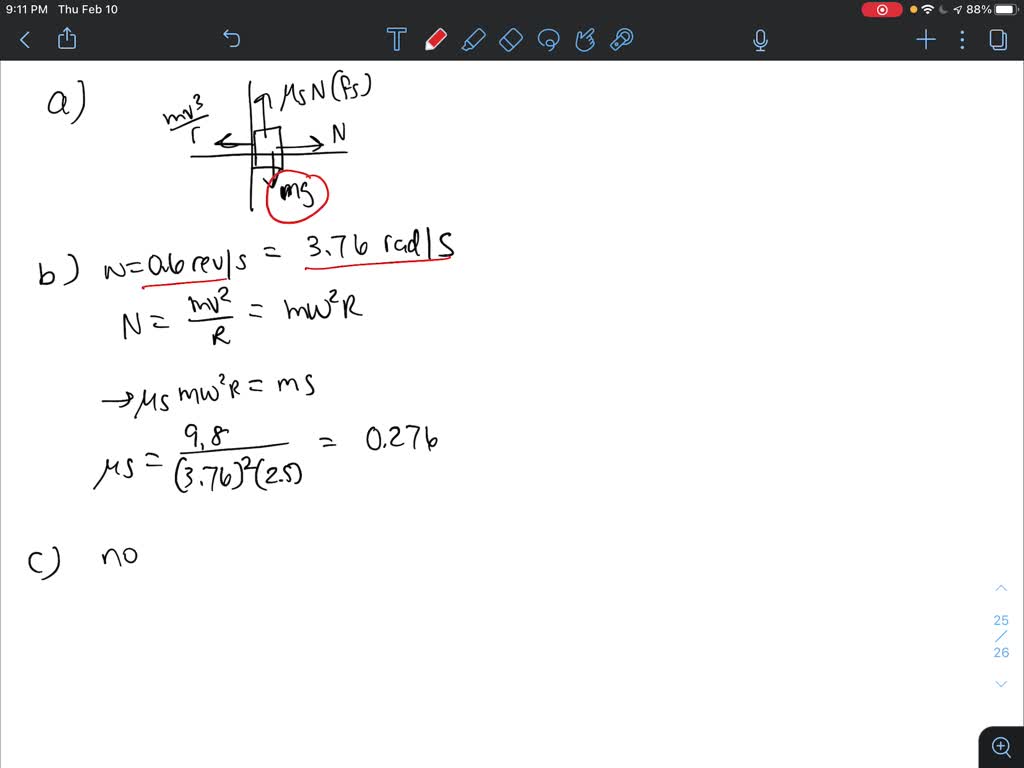 9:11 PM Thu Feb 10
88%
T
a)
μs N (fs)
mv³/r
N
mg
b) w = 0.6 rev/s = 3.76 rad/s
N = mv²/R = mw²R
→ μs mw²R = mg
μs = 9,8/(3.76)²(2.5) = 0.276
c) no
25
/
26